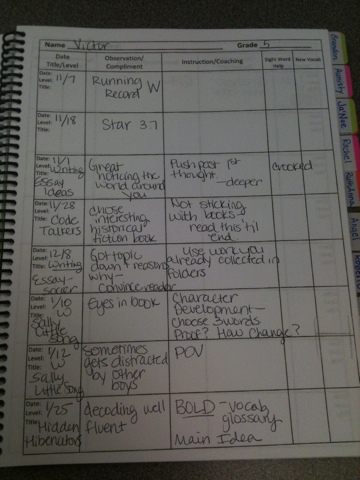 Name Victor Grade 5
Date: Title/Level Observation/ Compliment Instruction/Coaching Sight Word Help New Vocab
Date: 11/7
Level:
Title:
Running
Record W
Date: 11/18
Level:
Title:
Star 3.7
Date: 11/1
Level: Writing
Title:
Essay
Ideas
Great
noticing the
world around
you
Push past 1st
thought.
—deeper
crooked
Date: 11/28
Level: Code
Title: Talkers
chose
interesting
historical
fiction book
Not sticking
with books -
read this 'til
end
Date: 12/8
Level: Writing
Title:
Essay-
soccer
Got topic
down + reasons
why-
convince reader
Use work you
already collected in
folders
Date: 1/10
Level: W
Title:
Sally Little
Song
Eyes in book
Character
Development-
choose 3 words
Proof? How change?
Date: 1/12
Level: W
Title:
Sally
Little Song
Sometimes
gets distracted
by other
boys
POV
Date: 1/25
Level:
Title: Hidden
Hibernators
decoding well
fluent
BOLD - vocab
glossary
Main Idea
Brandon
Ja'Nae
Rachel